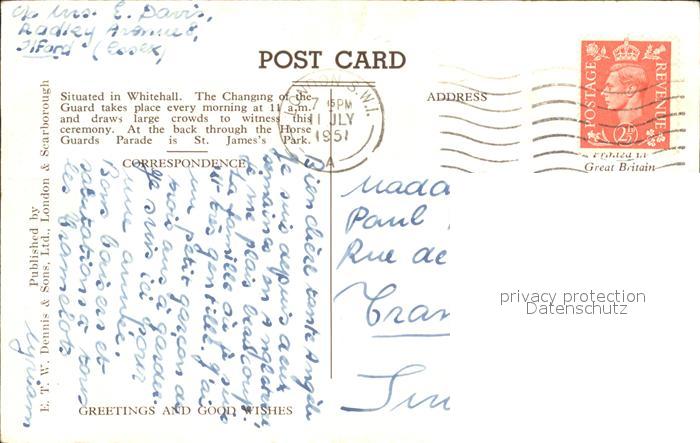 c/o Mrs. E. Davis,
Radley Avenue 8,
Ilford (Essex)
POST CARD
Situated in Whitehall. The Changing of the
Guard takes place every morning at 11 a.m.
and draws large crowds to witness this
ceremony. At the back through the Horse
Guards Parade is St. James's Park.
CORRESPONDENCE
ADDRESS
LONDON S.W.1.
7 15 PM
11 JLY
1951
A
POSTAGE REVENUE
2½D
Printed in
Great Britain
Published by
E. T. W. Dennis & Sons, Ltd., London & Scarborough
Bien chère tante Angèle
Je suis depuis deux
semaines en Angleterre,
et me plais beaucoup.
La famille où je suis
est très gentille. J'ai
un petit garçon de
trois ans à garder.
Je suis ici pour
une année.
Bons baisers et
salutations à tous
les Tramelots
Myriam
Mada
Paul
Rue de
Tram
Sui
privacy protection
Datenschutz
GREETINGS AND GOOD WISHES